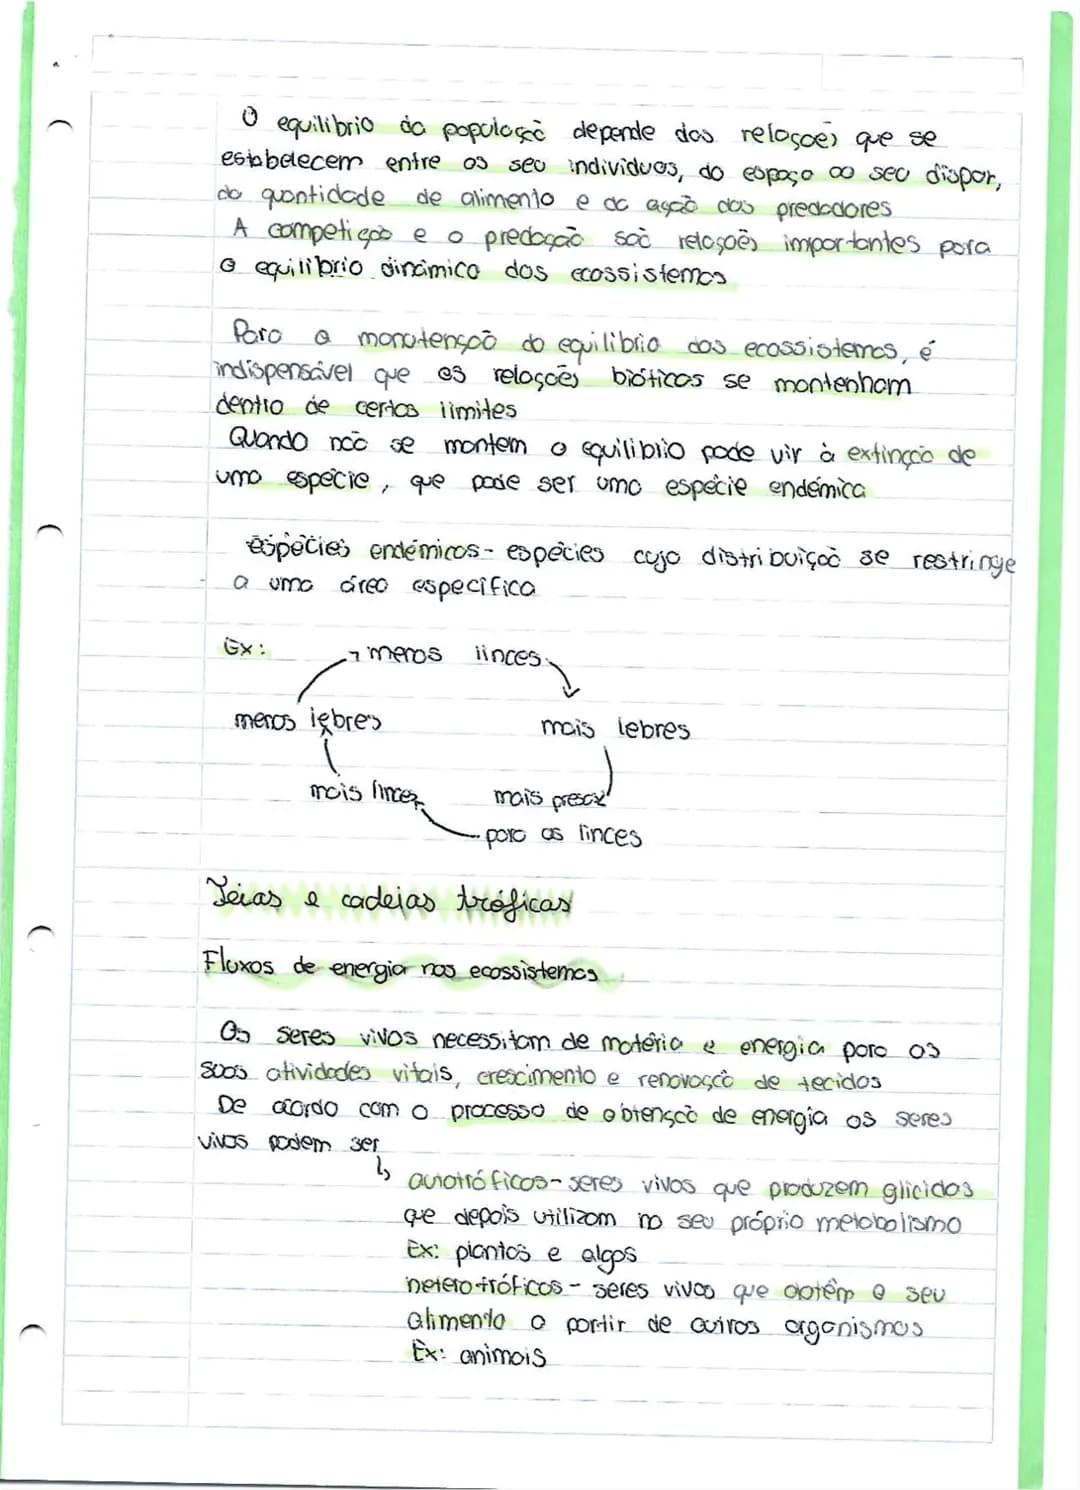 O equilibrio da população depende das relações que se
estabelecem entre os seu individuos, do espaço ao seu dispor,
da quantidade de alimento e da ação dos predadores
A competição e a predação são relações importantes para
o equilibrio dinâmico dos ecossistemas
Para a manutenção do equilibrio dos ecossistemas, é
indispensável que as relações bióticas se mantenham
dentro de certos limites
Quando não se mantem o equilibrio pode vir à extinção de
uma espécie, que pode ser uma espécie endémica
espécies endémicas- espécies cuja distribuição se restringe
a uma área especifica
Ex:
menos linces
menos lebres mais lebres
mais linces mais presas
para os linces
Teias e cadeias tróficas
Fluxos de energia nos ecossistemas
Os seres vivos necessitam de matéria e energia para as
suas atividades vitais, crescimento e renovação de tecidos
De acordo com o processo de obtenção de energia os seres
vivos podem ser
↳ autotróficos- seres vivos que produzem glicidos
que depois utilizam no seu próprio metabolismo
Ex: plantas e algas
heterotróficos- seres vivos que obtêm o seu
alimento a partir de outros organismos
Ex: animais